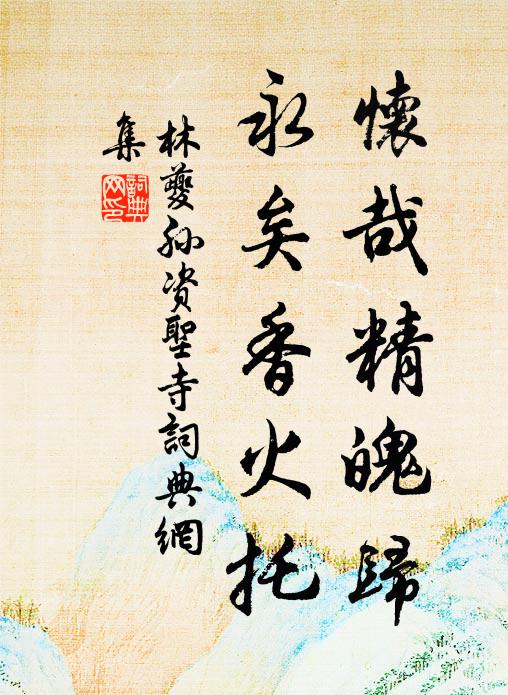 懷哉精魄歸
永矣香火托
林夔孫资聖寺詞典網
集
詞典网印